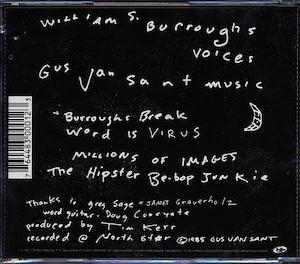 William S. Burroughs
voices
Gus Van Sant music
Burroughs Break
Word is VIRUS
MILLIONS OF IMAGES
The Hipster Be-bop Junkie
Thanks to greg Sage + JAMES Grauerholz
word guitar. Doug Cooeyate
produced by Tim Kerr
recorded @ North Star © 1985 GUS VAN SANT
7 64483 00012 3